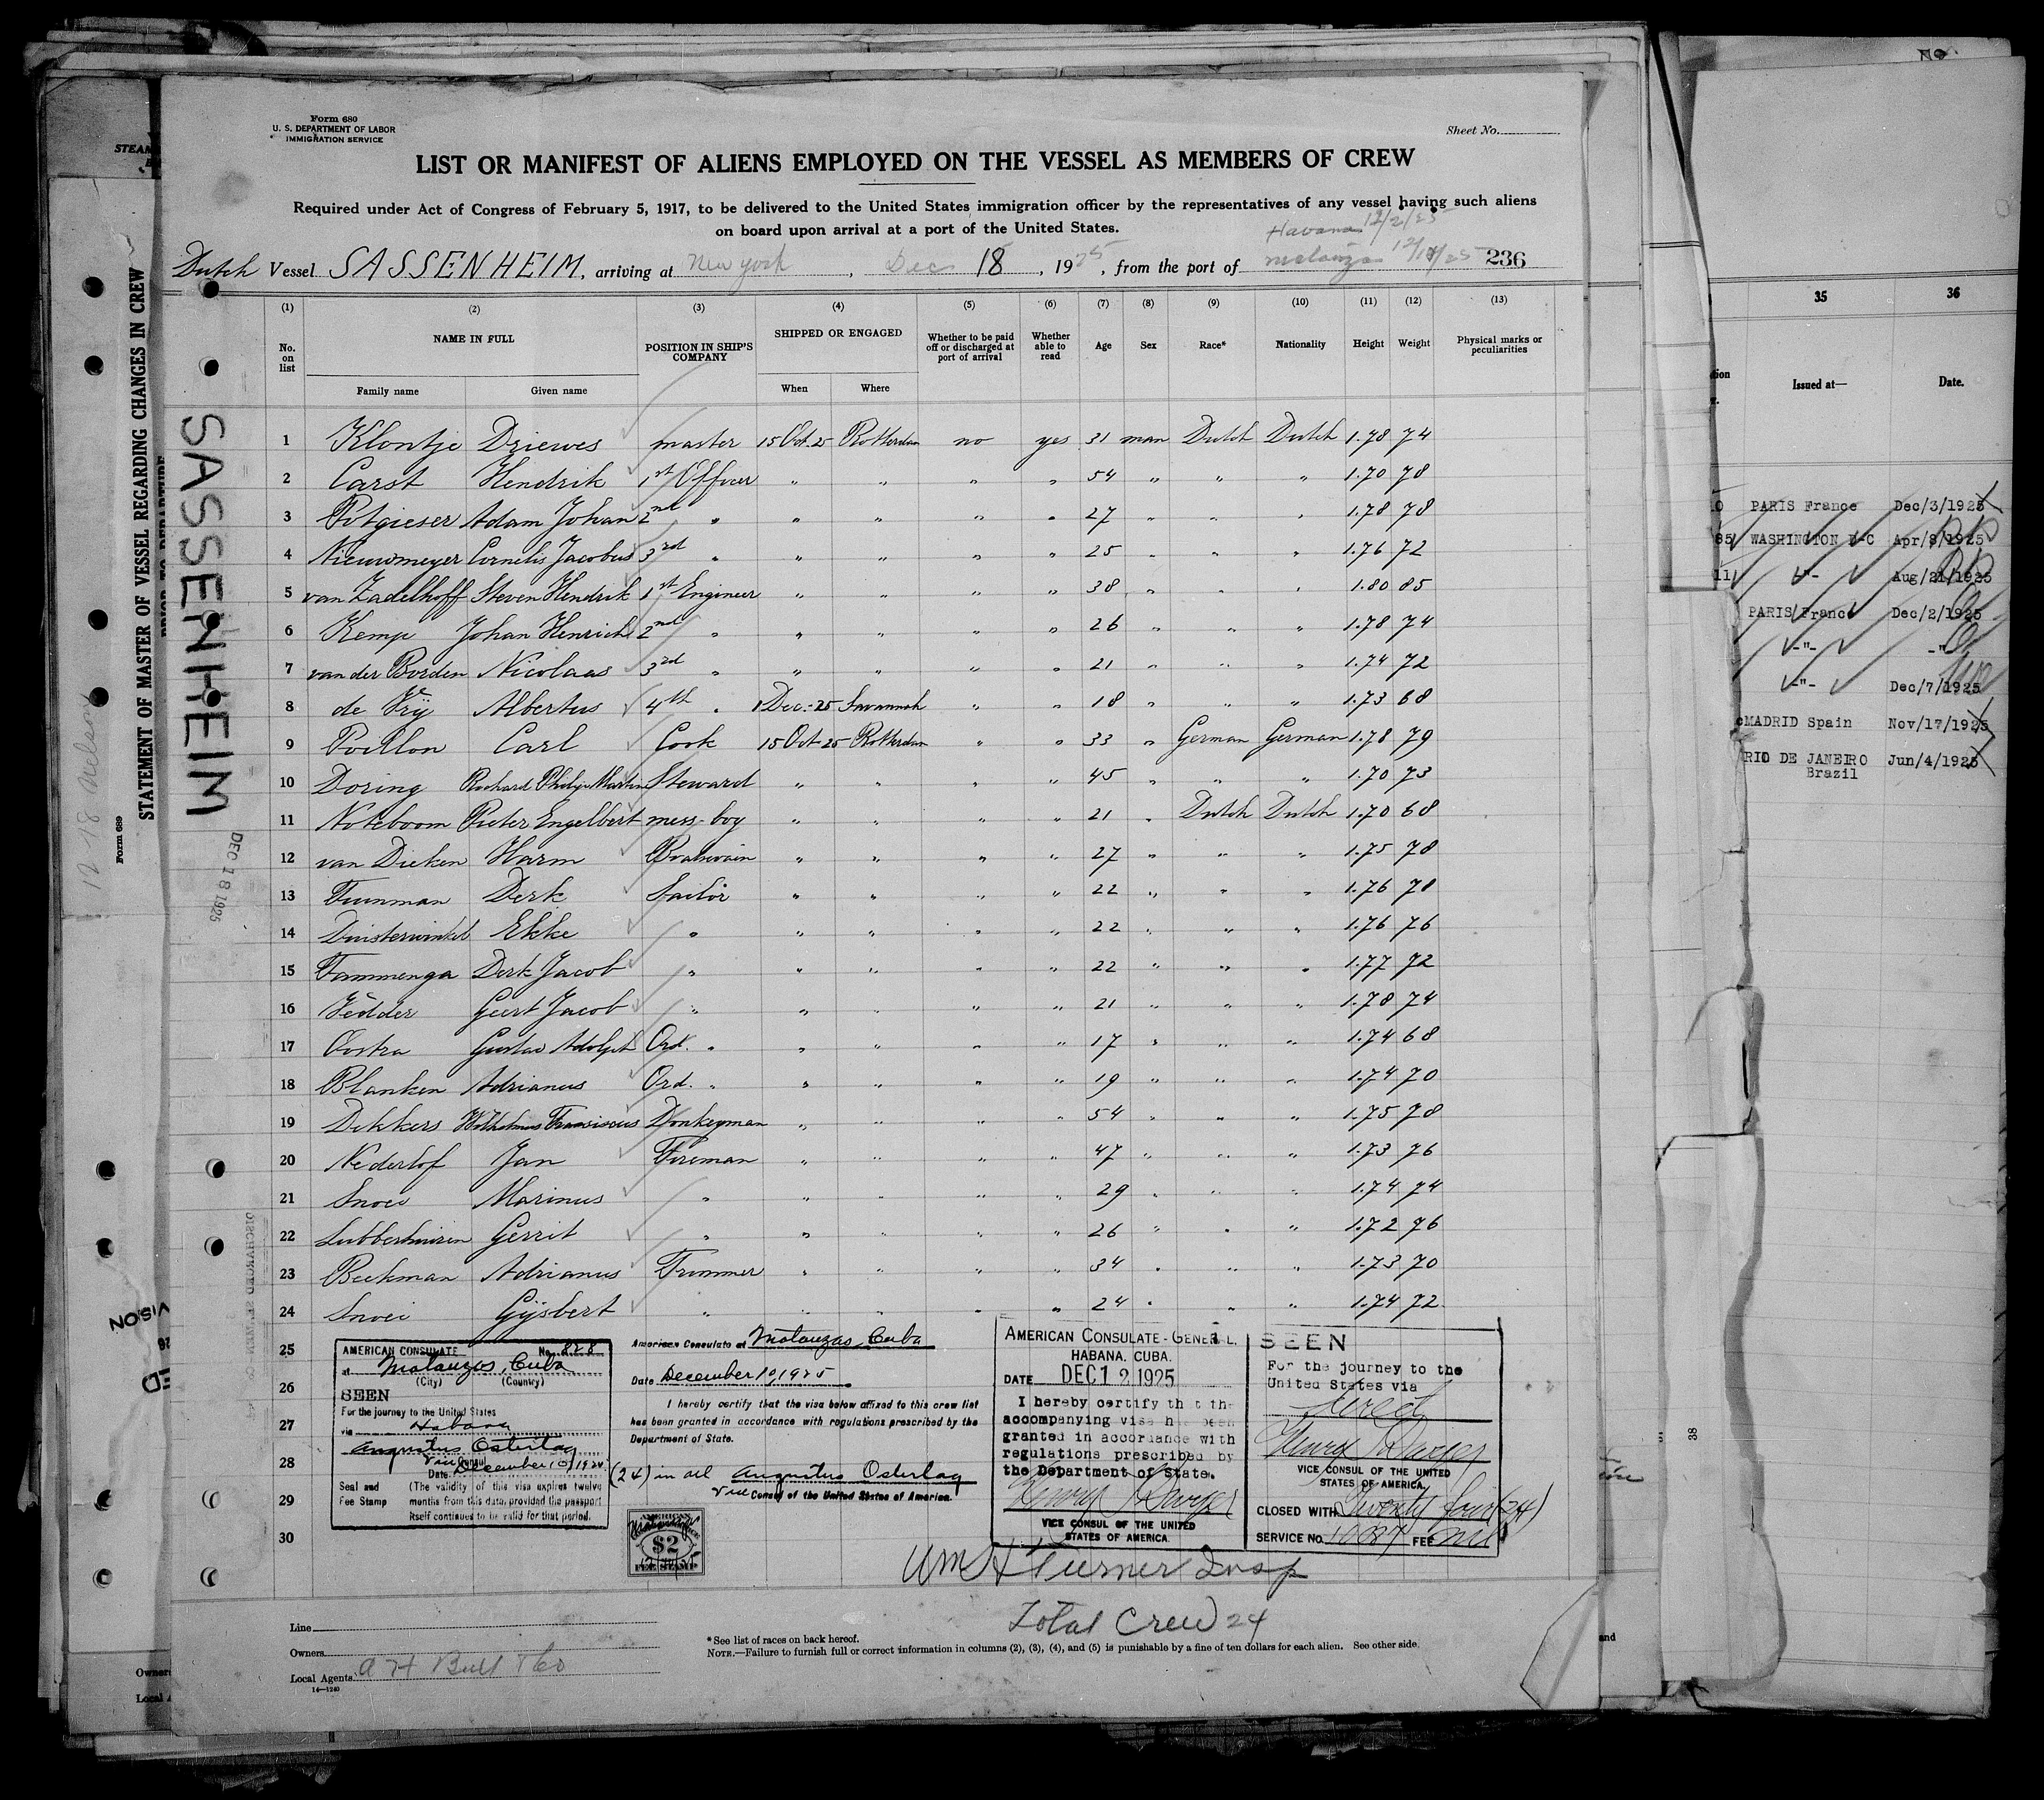 Form 680
U. S. DEPARTMENT OF LABOR
IMMIGRATION SERVICE
Sheet No.
LIST OR MANIFEST OF ALIENS EMPLOYED ON THE VESSEL AS MEMBERS OF CREW
Required under Act of Congress of February 5, 1917, to be delivered to the United States immigration officer by the representatives of any vessel having such aliens
on board upon arrival at a port of the United States.
Havana 12/2/25
Dutch Vessel SASSENHEIM, arriving at New York, Dec 18, 1925, from the port of Matanzas 236
(1) (2) (3) (4) (5) (6) (7) (8) (9) (10) (11) (12) (13)
No. on list NAME IN FULL Family name Given name POSITION IN SHIP'S COMPANY SHIPPED OR ENGAGED When Where Whether to be paid off or discharged at port of arrival Whether able to read Age Sex Race* Nationality Height Weight Physical marks or peculiarities
1 Klontje Driewes master 15 Oct. 25 Rotterdam no yes 31 man Dutch Dutch 1.78 74
2 Carst Hendrik 1st Officer " " " " 54 " " " 1.70 78
3 Potgieser Adam Johan 2nd " " " " " 27 " " " 1.78 78
4 Nieuwmeyer Cornelis Jacobus 3rd " " " " " 25 " " " 1.76 72
5 van Zadelhoff Steven Hendrik 1st Engineer " " " " 38 " " " 1.80 85
6 Kemp Johan Henrich 2nd " " " " " 26 " " " 1.78 74
7 van der Borden Nicolaas 3rd " " " " " 21 " " " 1.74 72
8 de Vrÿ Albertus 4th " 1 Dec. 25 Savannah " " 18 " " " 1.73 68
9 Poillon Carl Cook 15 Oct 25 Rotterdam " " 33 " German German 1.78 79
10 Doring Richard Philip Martin Steward " " " " 45 " " " 1.70 73
11 Noteboom Pieter Engelbert mess-boy " " " " 21 " Dutch Dutch 1.70 68
12 van Dieken Harm Boatswain " " " " 27 " " " 1.75 78
13 Tuinman Derk Sailor " " " " 22 " " " 1.76 78
14 Duisterwinkel Ekke " " " " " 22 " " " 1.76 76
15 Tammenga Derk Jacob " " " " " 22 " " " 1.77 72
16 Vedder Geert Jacob " " " " " 21 " " " 1.78 74
17 Oostra Gustav Adolph Ord. " " " " " 17 " " " 1.74 68
18 Blanken Adrianus Ord. " " " " " 19 " " " 1.74 70
19 Dekkers Wilhelmus Franciscus Donkeyman " " " " 54 " " " 1.75 78
20 Nederlof Jan Fireman " " " " 47 " " " 1.73 76
21 Snoei Marinus " " " " " 29 " " " 1.74 74
22 Lubberhuizen Gerrit " " " " " 26 " " " 1.72 76
23 Beekman Adrianus Trimmer " " " " 34 " " " 1.73 70
24 Snoei Gÿsbert " " " " " 24 " " " 1.74 72
25
26
27
28
29
30
AMERICAN CONSULATE No. 828
at Matanzas, Cuba
(City) (Country)
SEEN
For the journey to the United States
via Habana
Augustus Ostertag
Vice Consul
Date December 10, 1925
Seal and Fee Stamp
(The validity of this visa expires twelve
months from this date, provided the passport
itself continues to be valid for that period.
American Consulate at Matanzas, Cuba
Date December 10, 1925
I hereby certify that the visa below affixed to this crew list
has been granted in accordance with regulations prescribed by the
Department of State.
(24) in all Augustus Ostertag
Vice Consul of the United States of America.
$2
FEE STAMP
AMERICAN CONSULATE-GENERAL,
HABANA, CUBA.
DATE DEC 12 1925
I hereby certify that the
accompanying visa has been
granted in accordance with
regulations prescribed by
the Department of State.
VICE CONSUL OF THE UNITED
STATES OF AMERICA.
SEEN
For the journey to the
United States via
direct
VICE CONSUL OF THE UNITED
STATES OF AMERICA.
CLOSED WITH Twenty four (24)
SERVICE NO. 10087 FEE nil
Wm H Turner Insp
Total Crew 24
Line
Owners
Local Agents A H Bull & Co
14—1240
*See list of races on back hereof.
NOTE.—Failure to furnish full or correct information in columns (2), (3), (4), and (5) is punishable by a fine of ten dollars for each alien. See other side.
SASSENHEIM
DEC 18 1925
STATEMENT OF MASTER OF VESSEL REGARDING CHANGES IN CREW
PRIOR TO DEPARTURE
Form 689
12-18 Nelson
STEAM
Owners
Local A
35 36
Issued at— Date.
PARIS France Dec/3/1925
85 WASHINGTON D-C Apr/8/1925
11 -"- Aug/21/1925
PARIS France Dec/2/1925
-"- -"-
-"- Dec/7/1925
MADRID Spain Nov/17/1925
RIO DE JANEIRO Jun/4/1925
Brazil
38
and